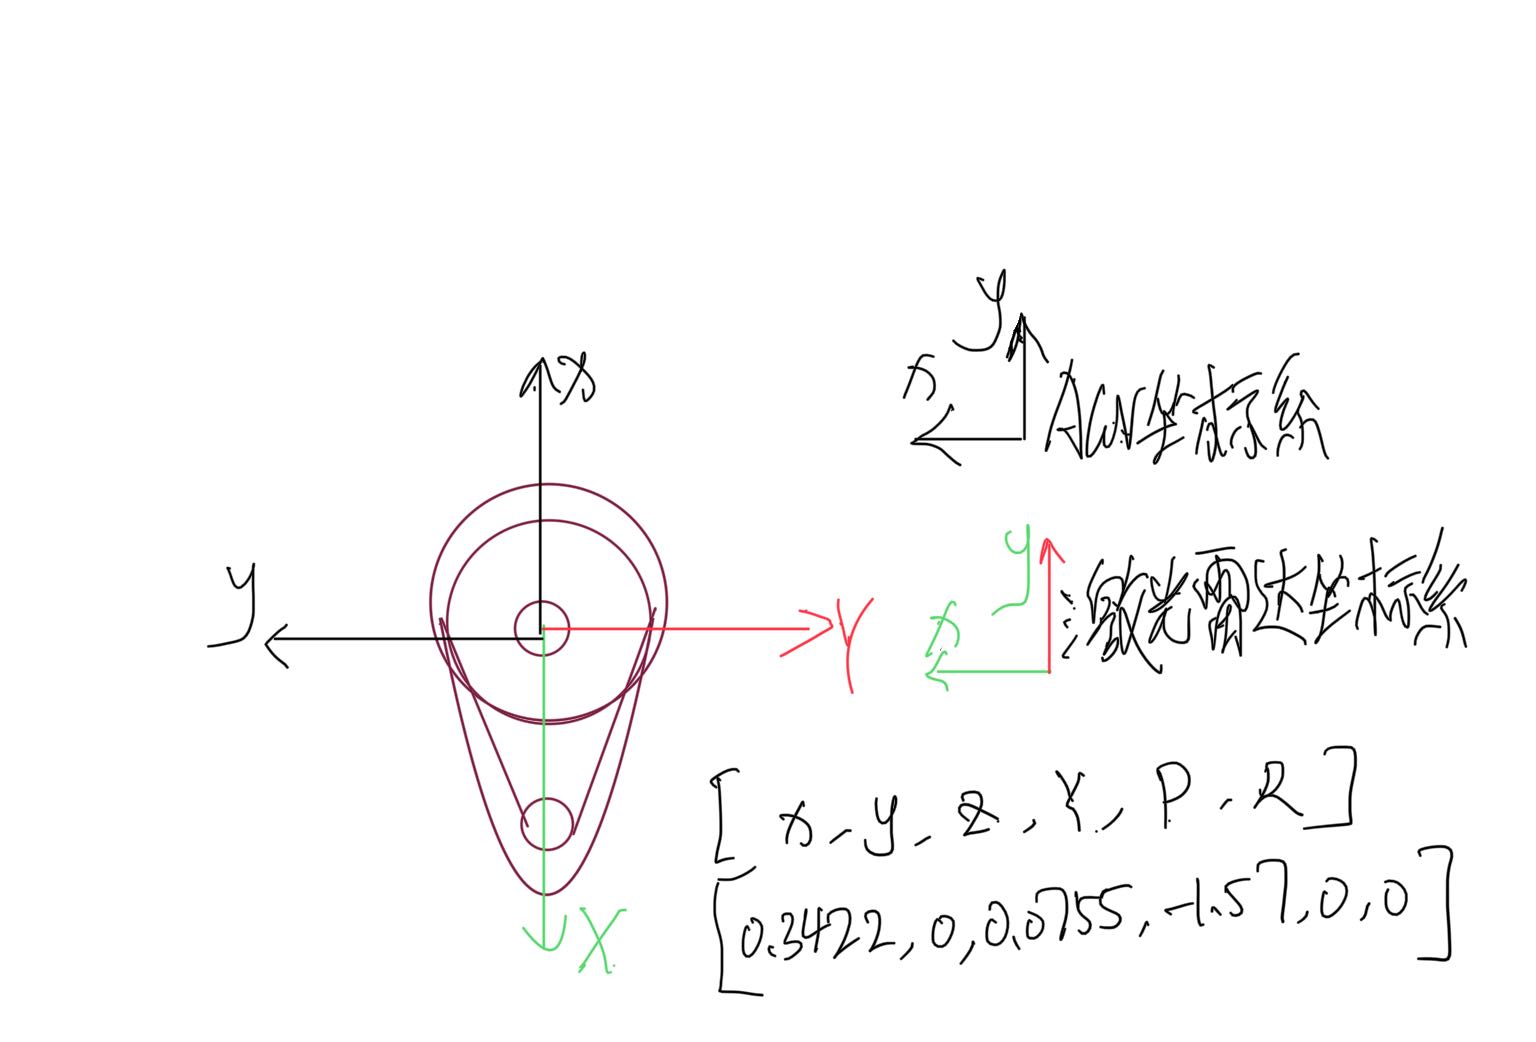 y
x
x
AGV坐标系
y
y
x
激光雷达坐标系
Y
[x, y, z, Y, P, R]
[0.3422, 0, 0.0755, -1.57, 0, 0]
X